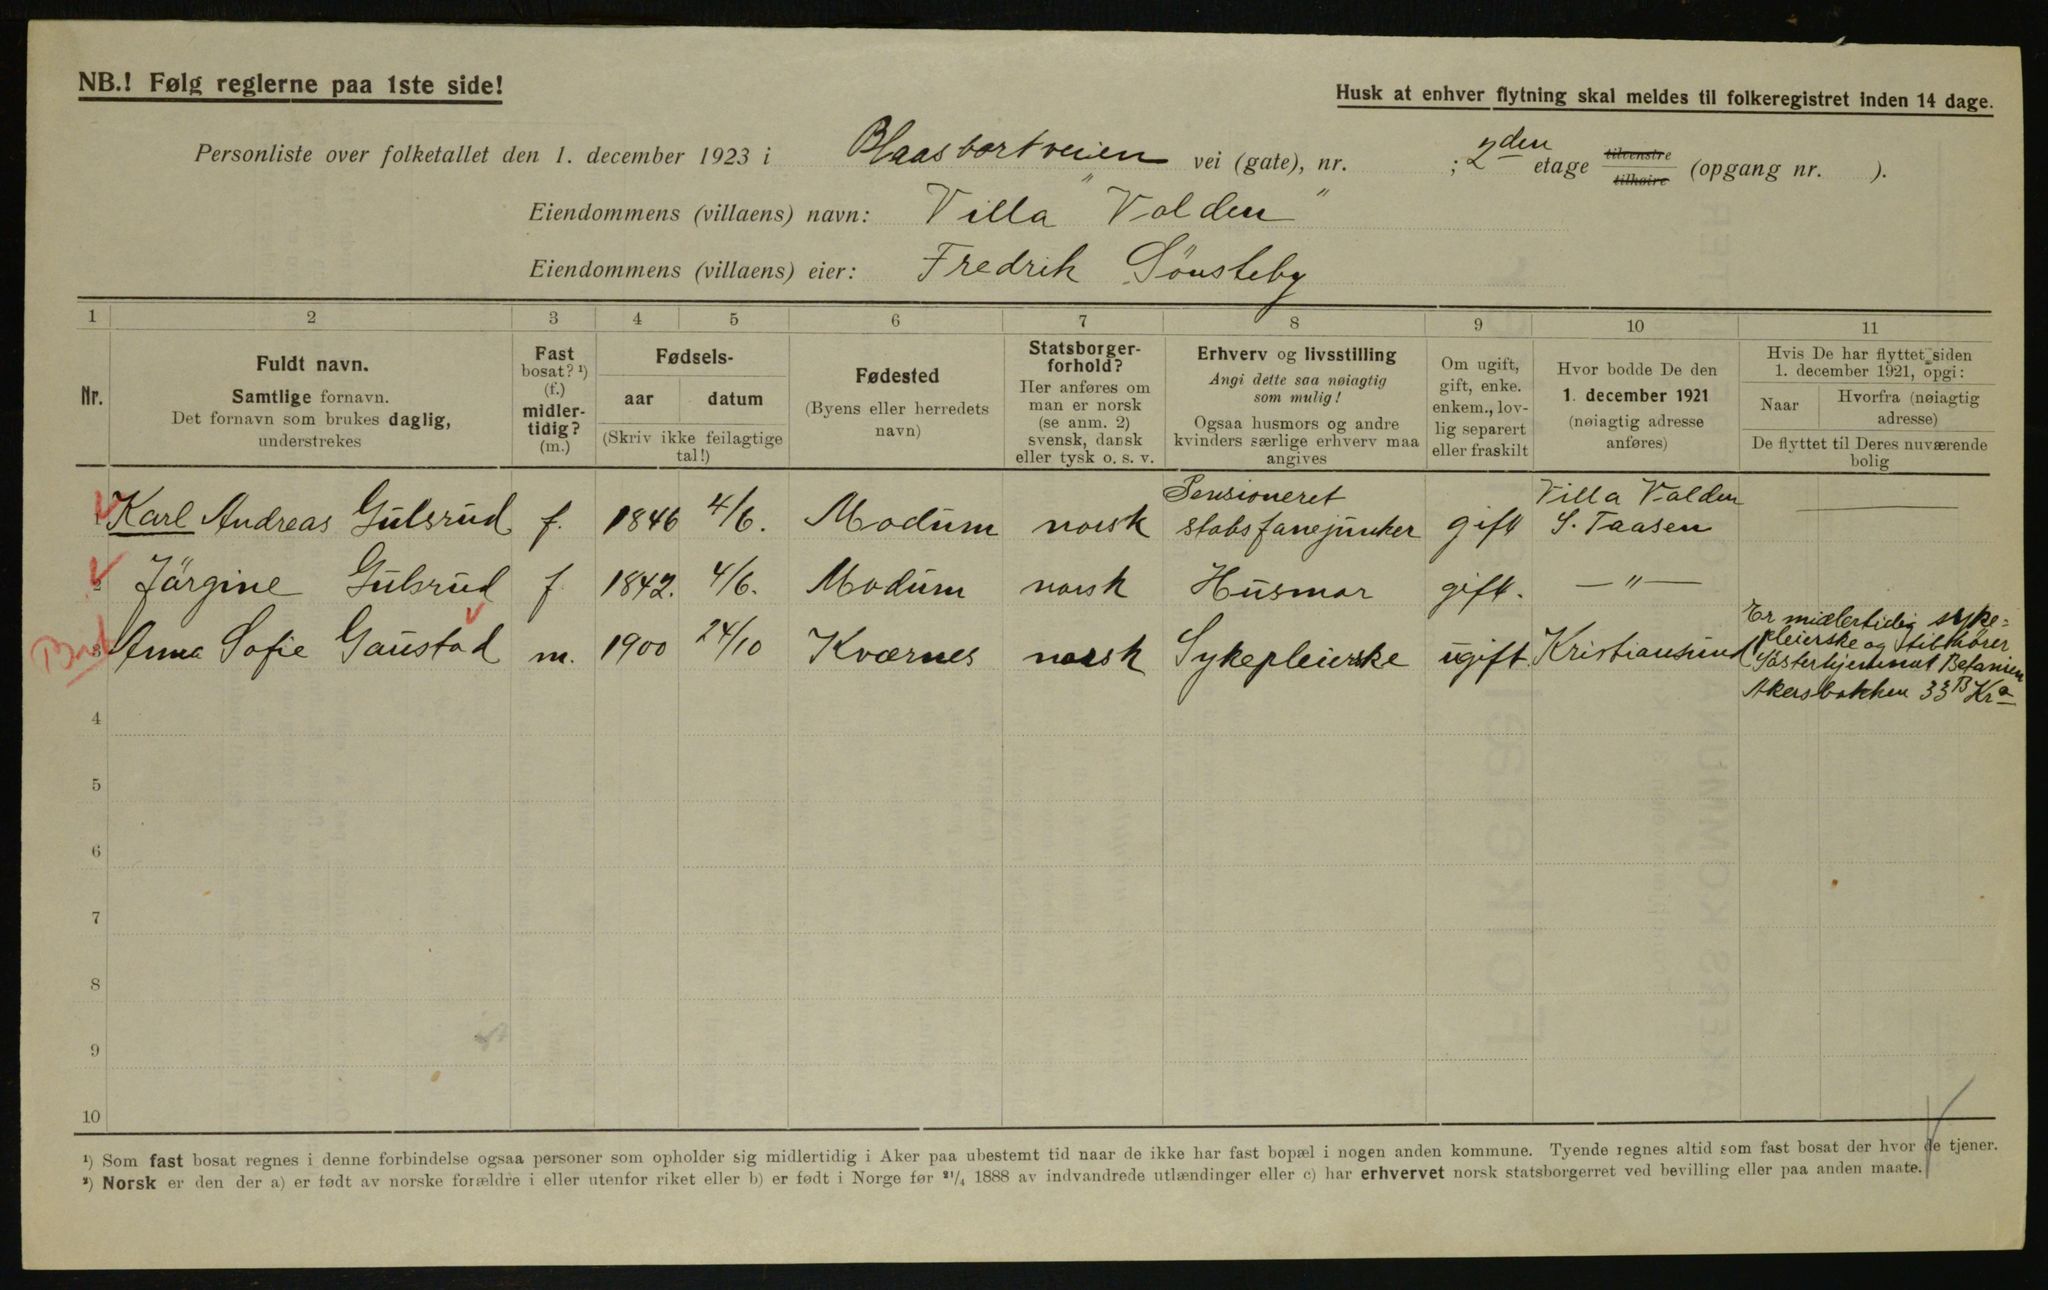 NB.! Følg reglerne paa 1ste side!
Husk at enhver flytning skal meldes til folkeregistret inden 14 dage.
Personliste over folketallet den 1. december 1923 i Blaasbortveien vei (gate), nr. ; 2den etage tilvenstre tilhøire (opgang nr. ).
Eiendommens (villaens) navn: Villa "Valden"
Eiendommens (villaens) eier: Fredrik Sönsteby
1 2 3 4 5 6 7 8 9 10 11
Nr.
Fuldt navn.
Samtlige fornavn.
Det fornavn som brukes daglig,
understrekes
Fast
bosat? ¹)
(f.)
midler-
tidig?
(m.)
Fødsels-
aar datum
(Skriv ikke feilagtige
tal!)
Fødested
(Byens eller herredets
navn)
Statsborger-
forhold?
Her anføres om
man er norsk
(se anm. 2)
svensk, dansk
eller tysk o. s. v.
Erhverv og livsstilling
Angi dette saa nøiagtig
som mulig!
Ogsaa husmors og andre
kvinders særlige erhverv maa
angives
Om ugift,
gift, enke.
enkem., lov-
lig separert
eller fraskilt
Hvor bodde De den
1. december 1921
(nøiagtig adresse
anføres)
Hvis De har flyttet siden
1. december 1921, opgi:
Naar
Hvorfra (nøiagtig
adresse)
De flyttet til Deres nuværende
bolig
1 Karl Andreas Gulsrud f. 1846 4/6. Modum norsk Pensioneret stabsfanejunker gift Villa Valden S. Taasen
2 Jörgine Gulsrud f. 1842. 4/6. Modum norsk Husmor gift. — " —
3 Anna Sofie Gaustad m. 1900 24/10 Kværnes norsk Sykepleierske ugift Kristiansund
Er midlertidig syke=
pleierske og tilhører
Søsterhjemmet Betanien
Akersbakken 33B Kra
4
5
6
7
8
9
10
¹) Som fast bosat regnes i denne forbindelse ogsaa personer som opholder sig midlertidig i Aker paa ubestemt tid naar de ikke har fast bopæl i nogen anden kommune. Tyende regnes altid som fast bosat der hvor de tjener.
²) Norsk er den der a) er født av norske forældre i eller utenfor riket eller b) er født i Norge før 21/4 1888 av indvandrede utlændinger eller c) har erhvervet norsk statsborgerret ved bevilling eller paa anden maate.